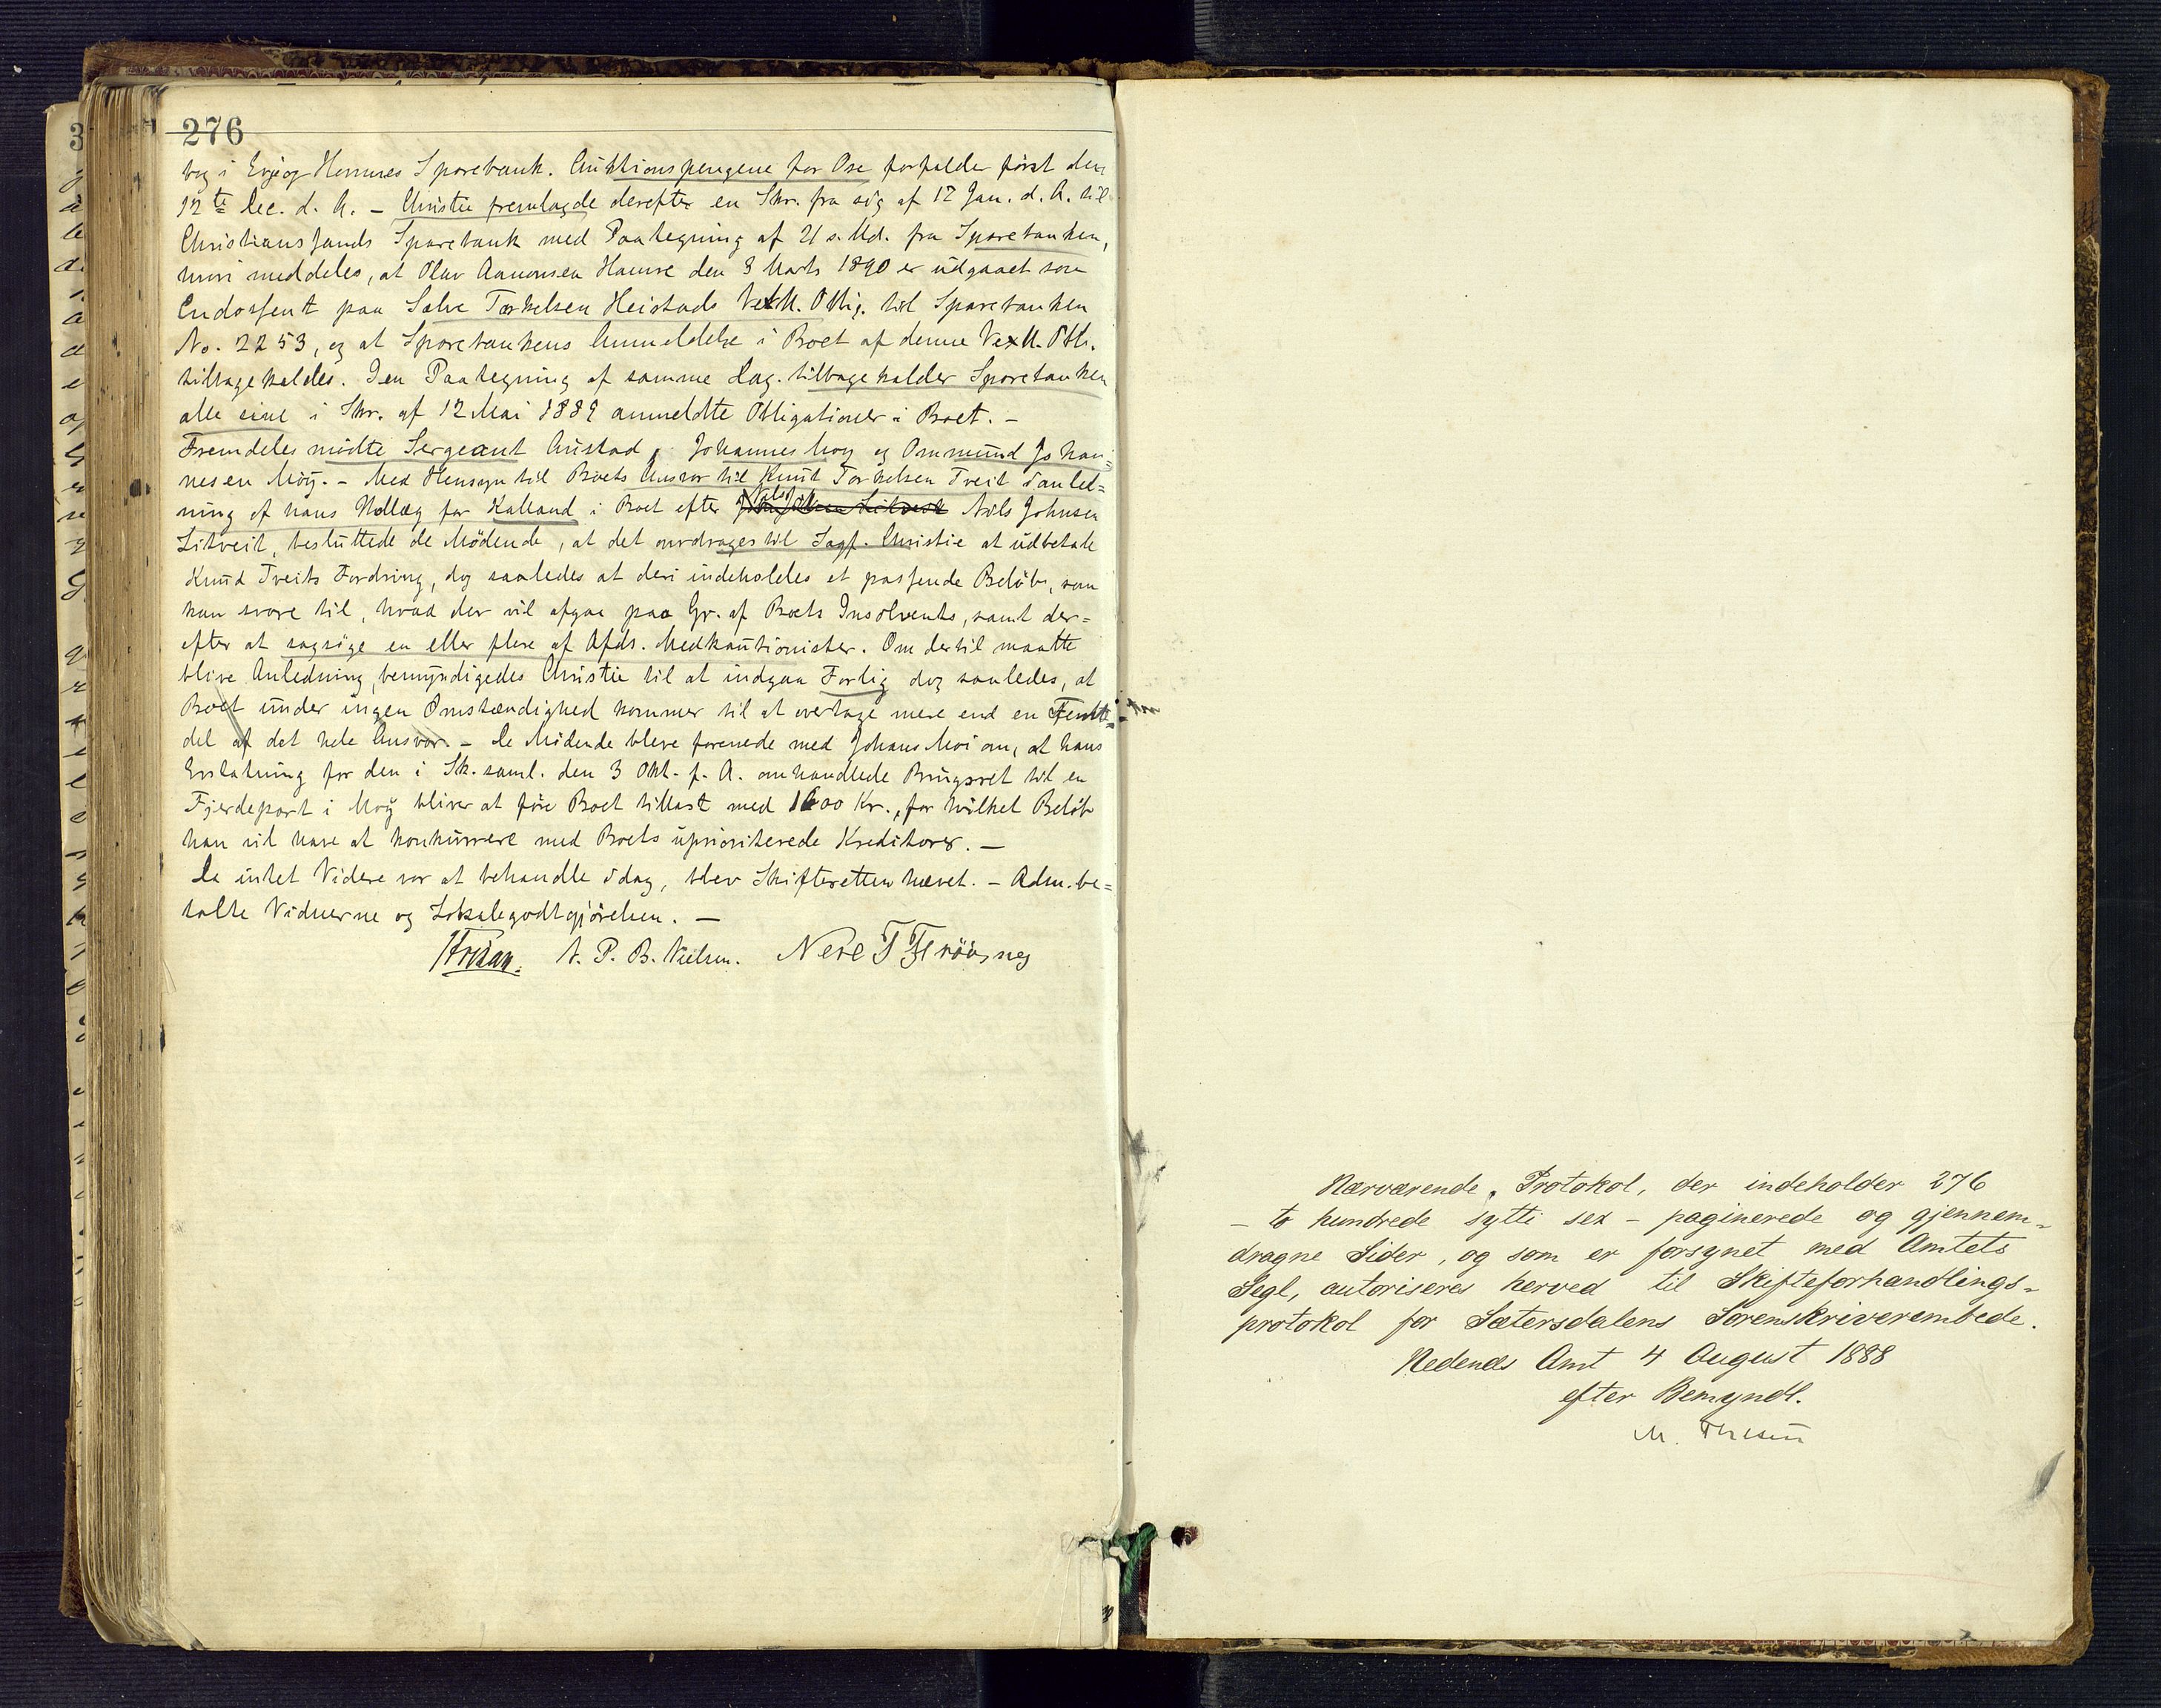 276
bog i Evje og Hornnes Sparebank. Auktionspengene for Ose forfalder först den
12te Dec. d. A. – Christie fremlagde derefter en Skr. fra sig af 17 Jan. d. A. til
Christianssands Sparebank med Paategning af 21 s. Md. fra Sparebanken,
hvori meddeles, at Olav Aanonsen Hamre den 3 Marts 1890 er udgaaet som
Endossent paa Salve Torkelsen Heistads Vexl. Oblig. til Sparebanken
No. 2253, og at Sparebankens Anmeldelse i Boet af denne Vexl. Obl.
tilbagekaldes. I en Paategning af samme Dag tilbagekalder Sparebanken
alle sine i Skr. af 12 Mai 1889 anmeldte Obligationer i Boet. –
Fremdeles mödte Sergeant Austad, Johannes Moy og Ommund Johan=
nesen Möy. – Med Hensyn til Boets Ansvar til Knut Torkelsen Treit i Anled=
ning af hans Udlæg for Kalland i Boet efter Nils Johnsen
Litveit, besluttede de Mödende, at det overdrages til Sagf. Christie at udbetale
Knud Treits Fordring, dog saaledes at deri indeholdes et passende Belöb, som
kan svare til, hvad der vil afgaa paa Gr. af Boets Insolvents, samt der=
efter at sagsöge en eller flere af Afds. Medkautionister. Om dertil maatte
blive Anledning, bemyndigedes Christie til at indgaa Forlig dog saaledes, at
Boet under ingen Omstændighed kommer til at overtage mere end en Femte=
del af det hele Ansvar. – De Mödende bleve forenede med Johans Moi om, at hans
Erstatning for den i Sk. saml. den 3 Okt. f. A. omhandlede Brugsret til en
Fjerdepart i Moy bliver at före Boet tillast med 1600 Kr., for hvilket Belöb
han vil have at konkurrere med Boets uprioriterede Kreditorer. –
Da intet Videre var at behandle idag, blev Skifteretten hævet. – Adm. be=
talte Vidnerne og Lokalegodtgjörelsen. –
N. P. B. Nielsen. Nere T
Nærværende Protokol, der indeholder 276
– to hundrede sytti sex – paginerede og gjennem=
dragne Sider, og som er forsynet med Amtets
Segl, autoriseres herved til Skifteforhandlings=
protokol for Sætersdalens Sorenskriverembede.
Nedenæs Amt 4 August 1888
efter Bemyndl.